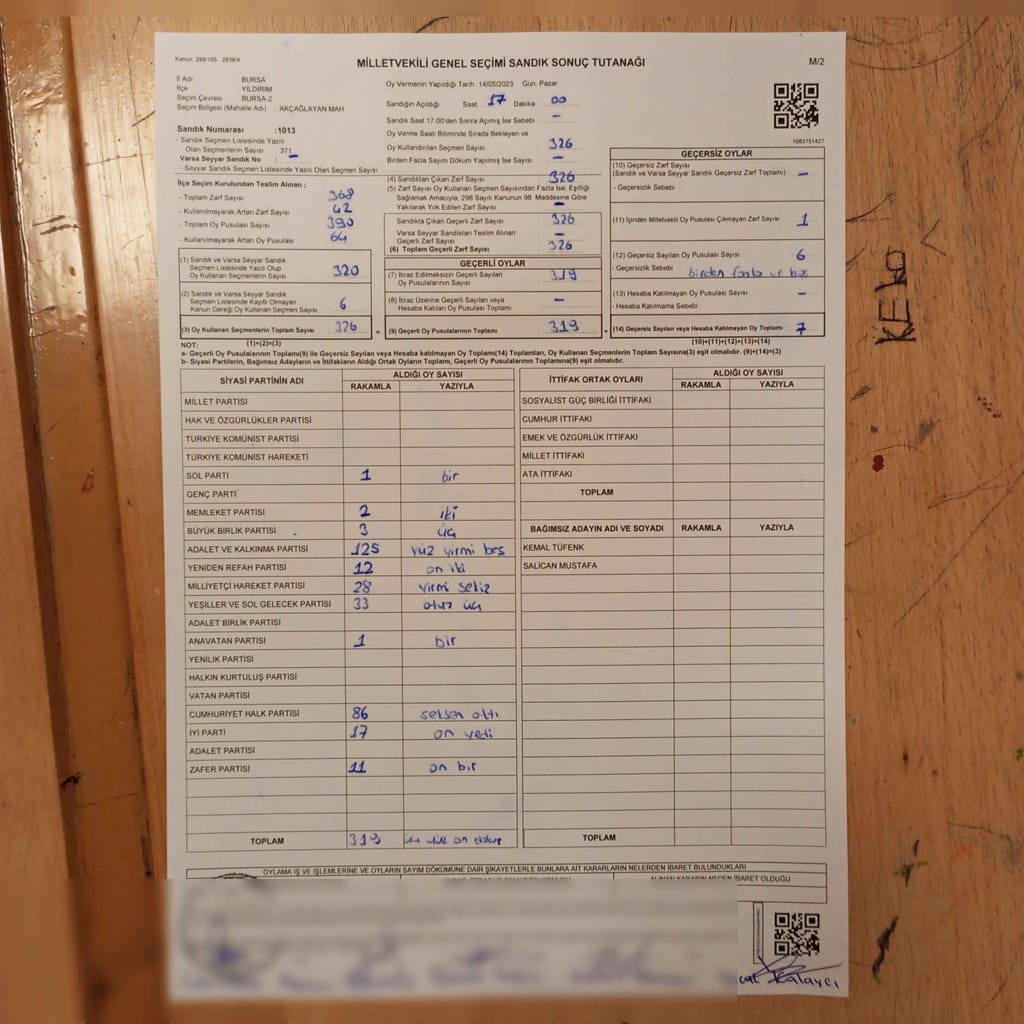 Kanun: 298/105 : 2839/4
MİLLETVEKİLİ GENEL SEÇİMİ SANDIK SONUÇ TUTANAĞI
M/2
İl Adı BURSA
İlçe YILDIRIM
Seçim Çevresi BURSA-2
Seçim Bölgesi (Mahalle Adı) AKÇAĞLAYAN MAH
Sandık Numarası :1013
- Sandık Seçmen Listesinde Yazılı
Olan Seçmenlerin Sayısı : 371
Varsa Seyyar Sandık No : –
- Seyyar Sandık Seçmen Listesinde Yazılı Olan Seçmen Sayısı
İlçe Seçim Kurulundan Teslim Alınan ;
- Toplam Zarf Sayısı 368
- Kullanılmayarak Artan Zarf Sayısı 42
- Toplam Oy Pusulası Sayısı 390
- Kullanılmayarak Artan Oy Pusulası 64
(1) Sandık ve Varsa Seyyar Sandık
Seçmen Listesinde Yazılı Olup
Oy Kullanan Seçmenlerin Sayısı 320
(2) Sandık ve Varsa Seyyar Sandık
Seçmen Listesinde Kayıtlı Olmayan
Kanun Gereği Oy Kullanan Seçmen Sayısı 6
(3) Oy Kullanan Seçmenlerin Toplam Sayısı 326
(1)+(2)=(3)
Oy Vermenin Yapıldığı Tarih : 14/05/2023 Gün: Pazar
Sandığın Açıldığı Saat 17 Dakika 00
Sandık Saat 17:00'den Sonra Açımış İse Sebebi –
Oy Verme Saati Bitiminde Sırada Bekleyen ve
Oy Kullandırılan Seçmen Sayısı 326
Birden Fazla Sayım Döküm Yapılmış İse Sayısı –
(4) Sandıktan Çıkan Zarf Sayısı 326
(5) Zarf Sayısı Oy Kullanan Seçmen Sayısından Fazla İse, Eşitliği
Sağlamak Amacıyla, 298 Sayılı Kanunun 98. Maddesine Göre
Yakılarak Yok Edilen Zarf Sayısı –
Sandıkta Çıkan Geçerli Zarf Sayısı 326
Varsa Seyyar Sandıktan Teslim Alınan
Geçerli Zarf Sayısı –
(6) Toplam Geçerli Zarf Sayısı 326
GEÇERLİ OYLAR
(7) İtiraz Edilmeksizin Geçerli Sayılan
Oy Pusulalarının Sayısı 319
(8) İtiraz Üzerine Geçerli Sayılan veya
Hesaba Katılan Oy Pusulaları Toplamı –
= (9) Geçerli Oy Pusulalarının Toplamı 319
1083751427
GEÇERSİZ OYLAR
(10) Geçersiz Zarf Sayısı
(Sandık ve Varsa Seyyar Sandık Geçersiz Zarf Toplamı) –
- Geçersizlik Sebebi
(11) İçinden Milletvekili Oy Pusulası Çıkmayan Zarf Sayısı 1
(12) Geçersiz Sayılan Oy Pusulası Sayısı 6
- Geçersizlik Sebebi birden fazla ve boş
(13) Hesaba Katılmayan Oy Pusulası Sayısı –
- Hesaba Katılmama Sebebi
+ (14) Geçersiz Sayılan veya Hesaba Katılmayan Oy Toplamı 7
(10)+(11)+(12)+(13)=(14)
NOT:
a- Geçerli Oy Pusulalarının Toplamı(9) ile Geçersiz Sayılan veya Hesaba katılmayan Oy Toplamı(14) Toplamları, Oy Kullanan Seçmenlerin Toplam Sayısına(3) eşit olmalıdır. (9)+(14)=(3)
b- Siyasi Partilerin, Bağımsız Adayların ve İttifakların Aldığı Ortak Oyların Toplamı, Geçerli Oy Pusulalarının Toplamına(9) eşit olmalıdır.
SİYASİ PARTİNİN ADI ALDIĞI OY SAYISI
RAKAMLA YAZIYLA
MİLLET PARTİSİ
HAK VE ÖZGÜRLÜKLER PARTİSİ
TÜRKİYE KOMÜNİST PARTİSİ
TÜRKİYE KOMÜNİST HAREKETİ
SOL PARTİ 1 bir
GENÇ PARTİ
MEMLEKET PARTİSİ 2 iki
BÜYÜK BİRLİK PARTİSİ 3 üç
ADALET VE KALKINMA PARTİSİ 125 yüz yirmi beş
YENİDEN REFAH PARTİSİ 12 on iki
MİLLİYETÇİ HAREKET PARTİSİ 28 yirmi sekiz
YEŞİLLER VE SOL GELECEK PARTİSİ 33 otuz üç
ADALET BİRLİK PARTİSİ
ANAVATAN PARTİSİ 1 bir
YENİLİK PARTİSİ
HALKIN KURTULUŞ PARTİSİ
VATAN PARTİSİ
CUMHURİYET HALK PARTİSİ 86 seksen altı
İYİ PARTİ 17 on yedi
ADALET PARTİSİ
ZAFER PARTİSİ 11 on bir
TOPLAM 319 üç yüz on dokuz
İTTİFAK ORTAK OYLARI ALDIĞI OY SAYISI
RAKAMLA YAZIYLA
SOSYALİST GÜÇ BİRLİĞİ İTTİFAKI
CUMHUR İTTİFAKI
EMEK VE ÖZGÜRLÜK İTTİFAKI
MİLLET İTTİFAKI
ATA İTTİFAKI
TOPLAM
BAĞIMSIZ ADAYIN ADI VE SOYADI RAKAMLA YAZIYLA
KEMAL TÜFENK
SALİCAN MUSTAFA
TOPLAM
OYLAMA İŞ VE İŞLEMLERİNE VE OYLARIN SAYIM DÖKÜMÜNE DAİR ŞİKAYETLERLE BUNLARA AİT KARARLARIN NELERDEN İBARET BULUNDUKLARI
ALINAN KARARIN NEDEN İBARET OLDUĞU
Kalaycı
KEKO